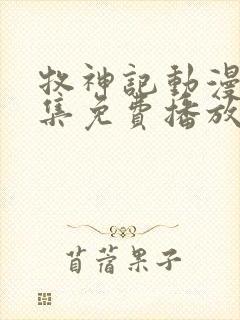 牧神記動漫
集免費播放
苜蓿果子